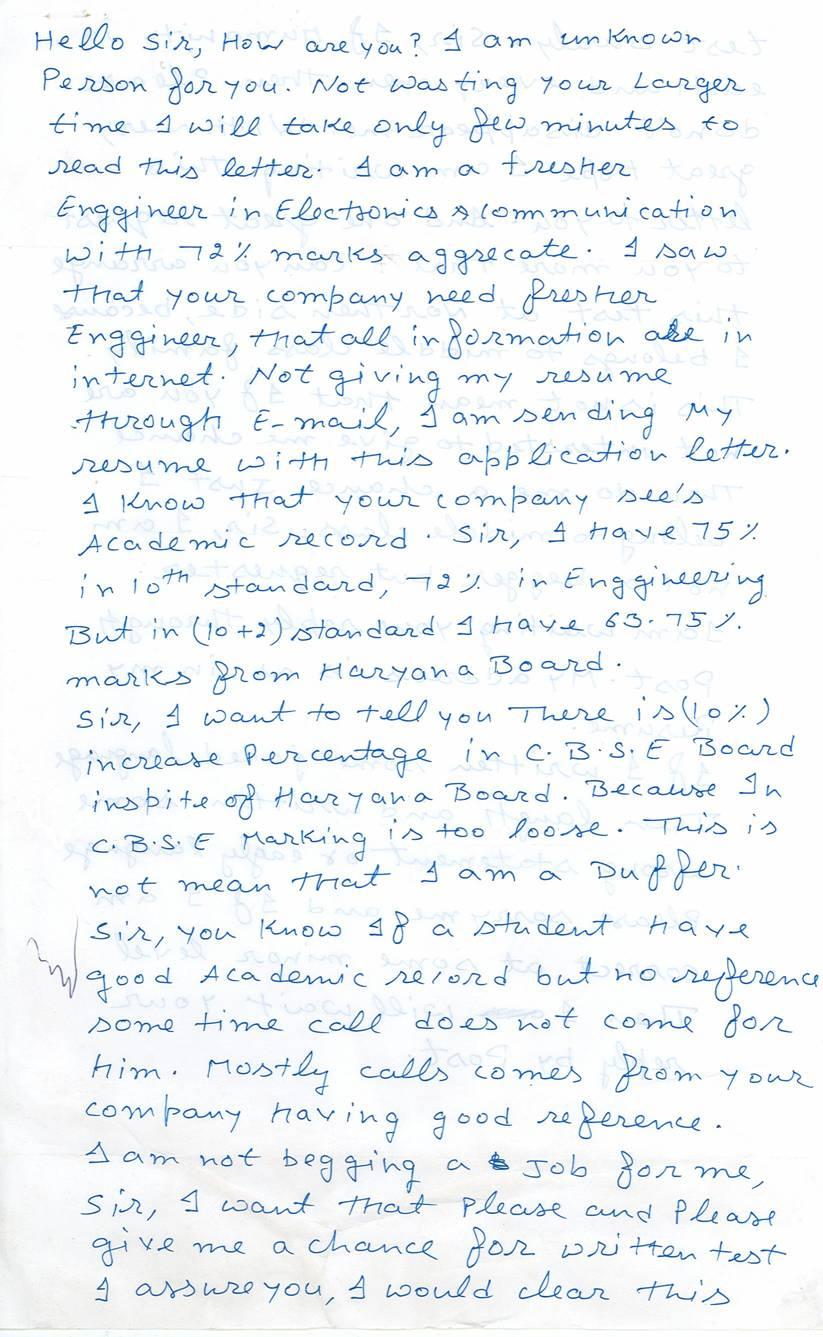 Hello Sir, How are you? I am unknown
Person for you. Not wasting your Larger
time I will take only few minutes to
read this letter. I am a fresher
Enggineer in Electronics & Communication
with 72% marks aggrecate. I saw
that your company need fresher
Enggineer, that all information are in
internet. Not giving my resume
through E-mail, I am sending My
resume with this application letter.
I Know that your company see's
Academic record. Sir, I have 75%
in 10th standard, 72% in Enggineering
But in (10+2) standard I have 63.75%.
marks from Haryana Board.
Sir, I want to tell you There is (10%)
increase Percentage in C.B.S.E Board
inspite of Haryana Board. Because In
C.B.S.E Marking is too loose. This is
not mean that I am a Duffer.
Sir, you Know If a student have
good Academic record but no reference
some time call does not come for
him. Mostly calls comes from your
company having good reference.
I am not begging a Job for me,
Sir, I want that Please and Please
give me a chance for written test
I assure you, I would clear this